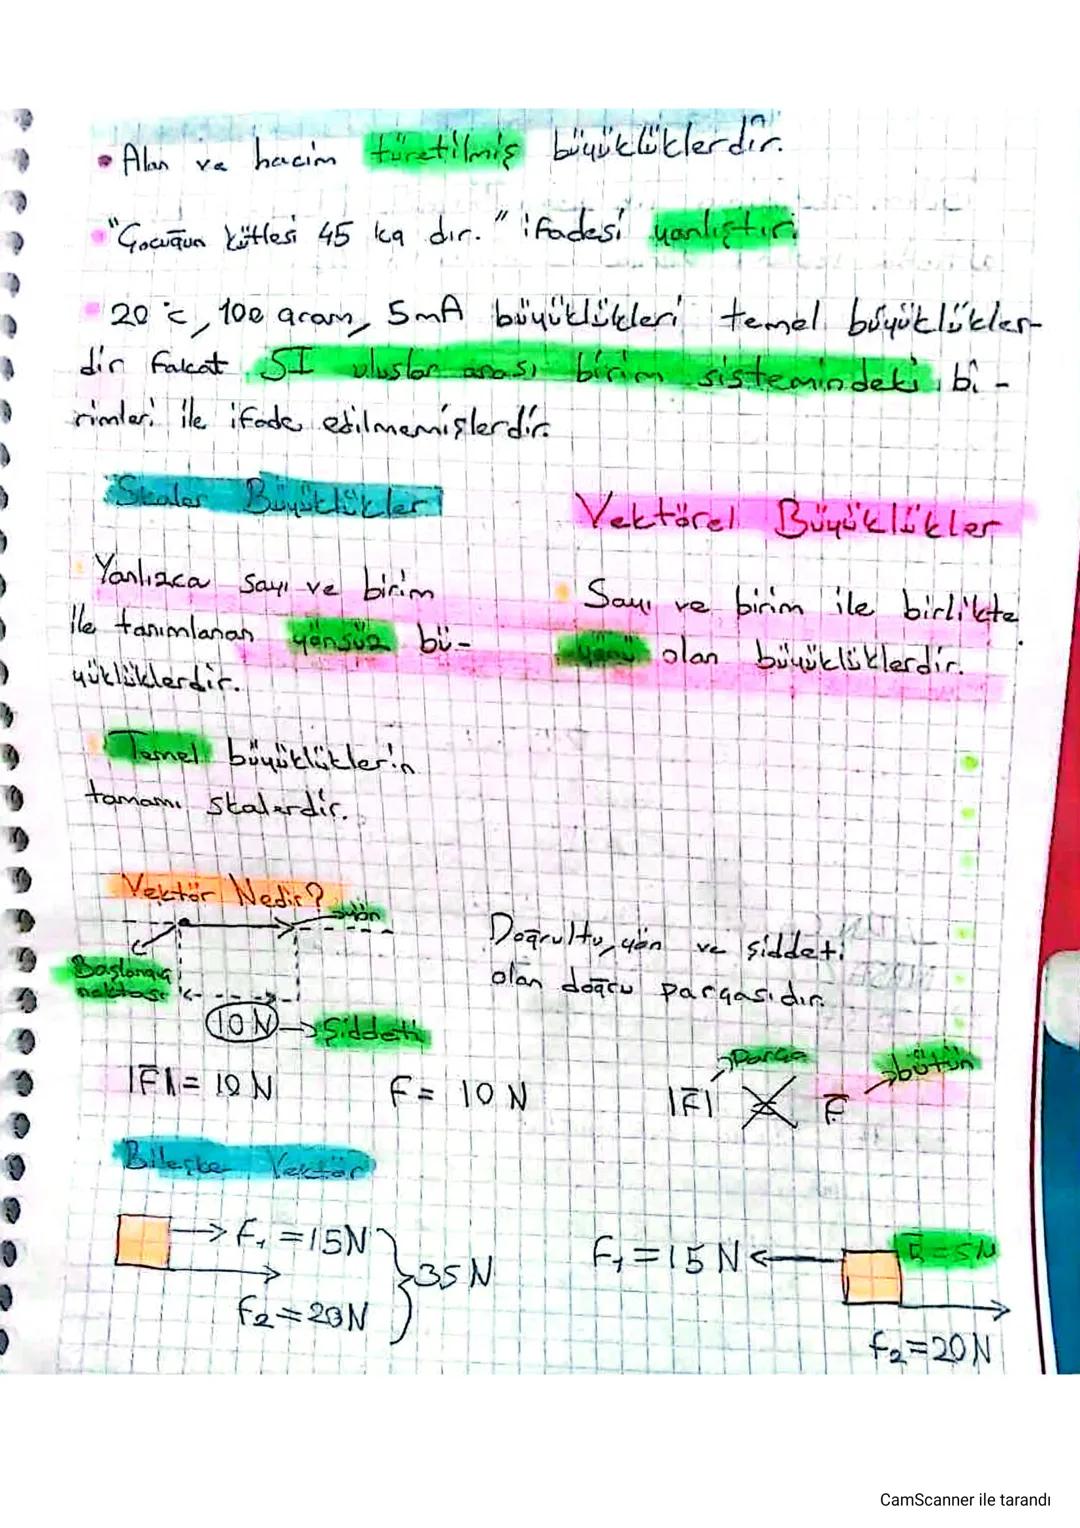 • Alan ve hacim türetilmiş büyüklüklerdir.
• "Çocuğun kütlesi 45 kg dır." ifadesi yanlıştır.
• 20 °c, 100 gram, 5mA büyüklükleri temel büyüklükler-
dir fakat SI uluslar arası birim sistemindeki bi-
rimleri ile ifade edilmemişlerdir.
Skaler Büyüklükler
Vektörel Büyüklükler
Yanlızca sayı ve birim
ile tanımlanan yönsüz bü-
yüklüklerdir.
Sayı ve birim ile birlikte
yönü olan büyüklüklerdir.
Temel büyüklüklerin
tamamı skalerdir.
Vektör Nedir?
yön
Başlangıç
noktası
10 N → Şiddeti
Doğrultu, yön ve şiddeti
olan doğru parçasıdır.
|F| = 10 N
F = 10 N
Parça
bütün
|F|
F
Bileşke Vektör
F₁ = 15N
F₂ = 20N
35 N
F₁ = 15 N
R = 5N
F₂ = 20N
CamScanner ile tarandı